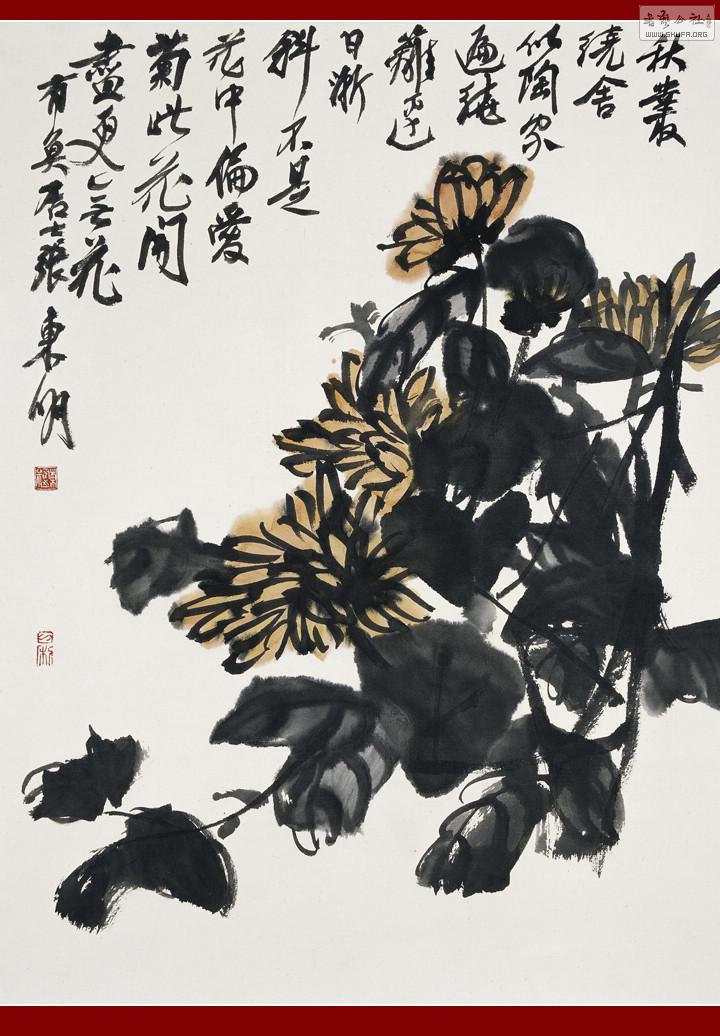 秋叢
繞舍
似陶家
遍繞
籬邊
日漸
斜不是
花中偏愛
菊此花開
盡更無花
有奐居士張東明
書法公社
WWW.SHUFA.ORG